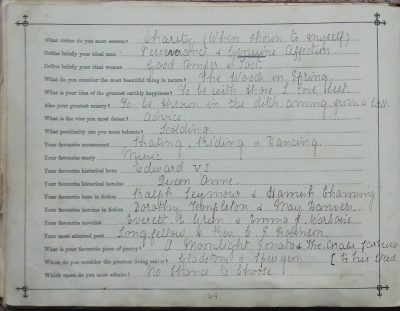 What virtue do you most esteem? Charity (When shown to myself)
Define briefly your ideal man Perseverance & Genuine Affection
Define briefly your ideal woman Good Temper & Tact.
What do you consider the most beautiful thing in nature? The Woods in Spring
What is your idea of the greatest earthly happiness? To be with those I love best.
Also your greatest misery? To be thrown in the ditch coming from a ball.
What is the vice you most detest? Advice
What peculiarity can you most tolerate? Scolding.
Your favourite amusement Skating, Riding & Dancing.
Your favourite study Music
Your favourite historical hero Edward VI
Your favourite historical heroine Queen Anne.
Your favourite hero in fiction Ralph Seymour & Hamish Channing
Your favourite heroine in fiction Dorothy Templeton & May Danvers
Your favourite novelist Everett Green & Emma J. Worboise
Your most admired poet Longfellow & Rev. E. J. Robinson
What is your favourite piece of poetry? A Moonlight Sonata & The
Whom do you consider the greatest living orator? Gladstone & Spurgeon
Which opera do you most admire? No Chance to Choose!